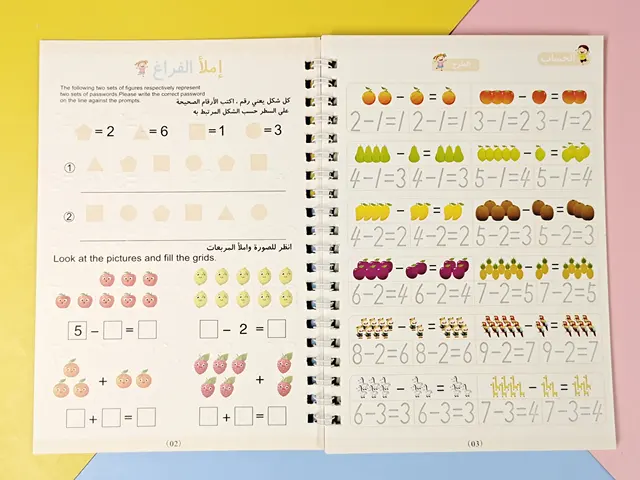 إملأ الفراغ
The following two sets of figures respectively represent
two sets of passwords.Please write the correct password
on the line against the prompts.
كل شكل يعني رقم ، اكتب الأرقام الصحيحة
على السطر حسب الشكل المرتبط به
=2 =6 =1 =3
①
②
انظر للصورة واملأ المربعات
Look at the pictures and fill the grids.
5 - =
- 2 =
+
+
+ =
+ =
(02)
الحساب
الطرح
- =
- =
2-1=1 2-1=1
3-1=2 3-1=2
- =
- =
4-1=3 4-1=3
5-1=4 5-1=4
- =
- =
4-2=2 4-2=2
5-2=3 5-2=3
- =
- =
6-2=4 6-2=4
7-2=5 7-2=5
- =
- =
8-2=6 8-2=6
9-2=7 9-2=7
- =
- =
6-3=3 6-3=3
7-3=4 7-3=4
(03)